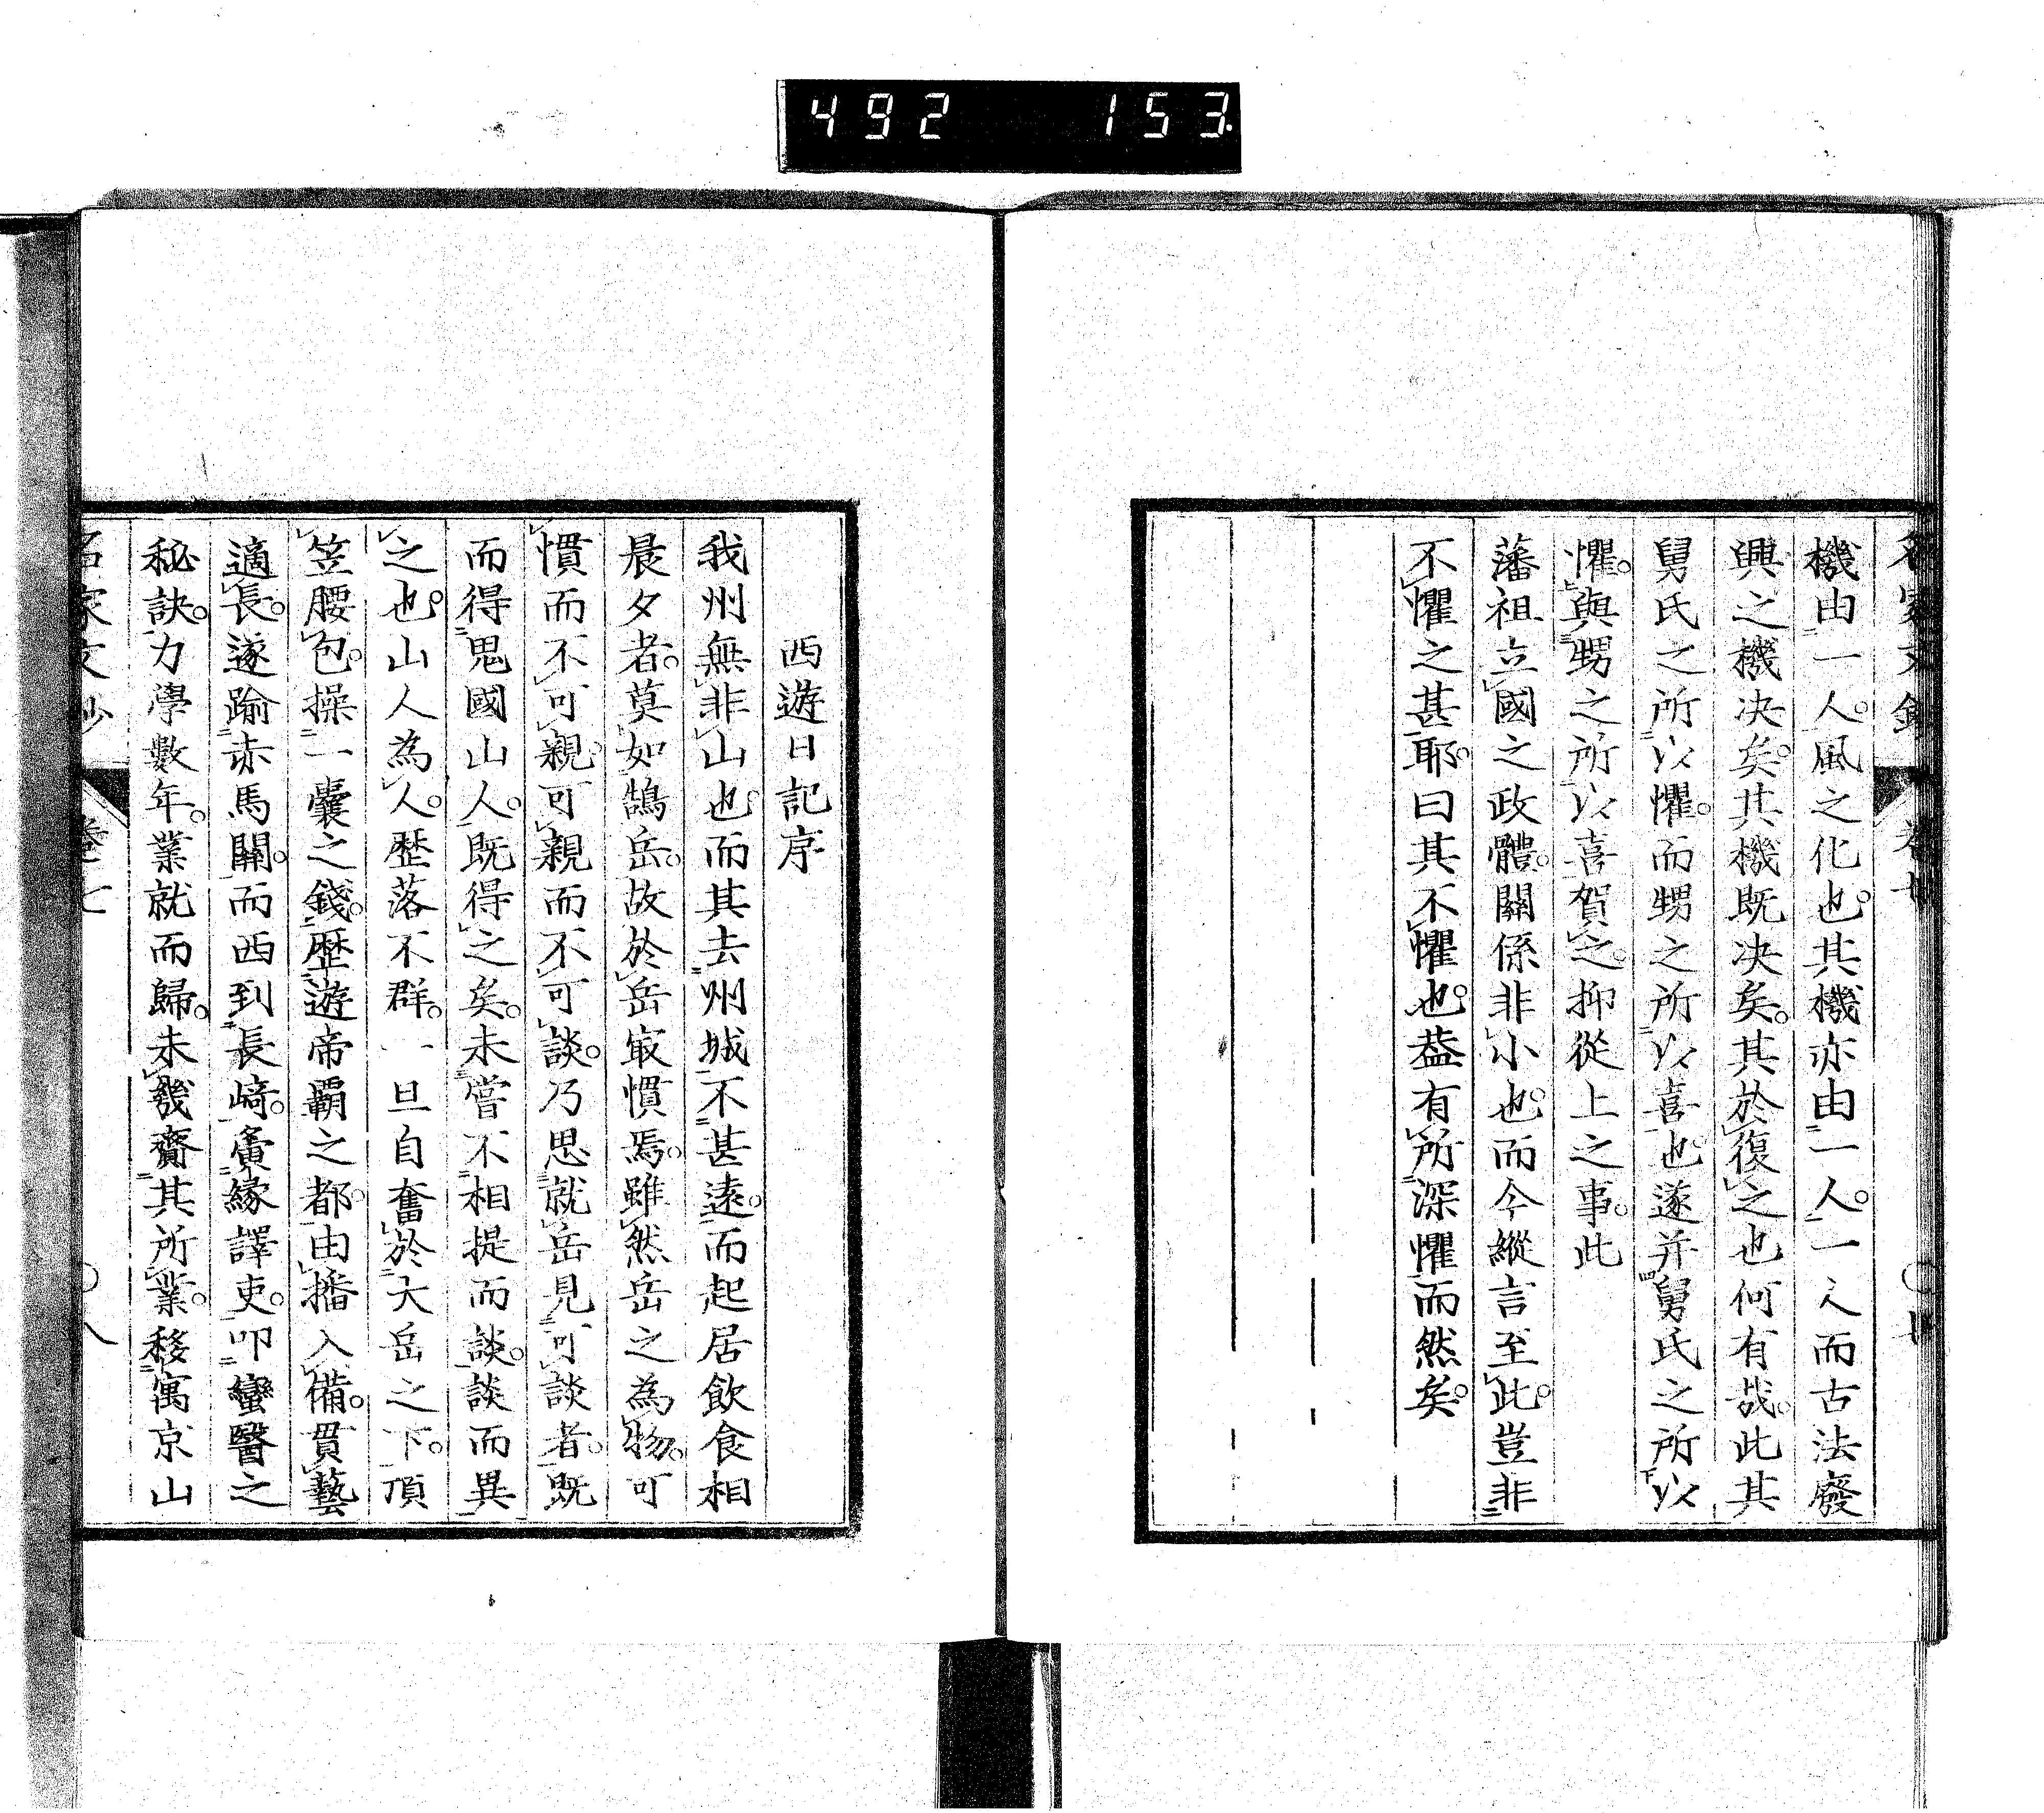 492 153
機由一人。風之化也。其機亦由一人。一人而古法廢
興之機決矣。其機既決矣。其於復之也何有哉。此其
舅氏之所以懼。而甥之所以喜也。遂并舅氏之所以
懼。與甥之所以喜賀之。抑從上之事。此
藩祖立國之政體。關係非小也。而今縱言至此。豈非
不懼之甚耶。曰其不懼也。葢有所深懼而然矣。
西遊日記序
我州無非山也。而其去州城不甚遠。而起居飲食相
晨夕者。莫如鵠岳。故於岳㝡慣焉。雖然岳之為物。可
慣而不可親。可親而不可談。乃思就岳見可談者。既
而得鬼國山人。既得之矣。未嘗不相提而談。談而異
之也。山人為人。歷落不群。一旦自奮於大岳之下。頂
笠腰包。操一囊之錢。歷遊帝霸之都。由播入備。貫藝
適長。遂踰赤馬關。而西到長崎。夤緣譯吏。叩蠻醫之
秘訣。力學數年。業就而歸。未幾齎其所業。移寓京山
名家文抄 卷七